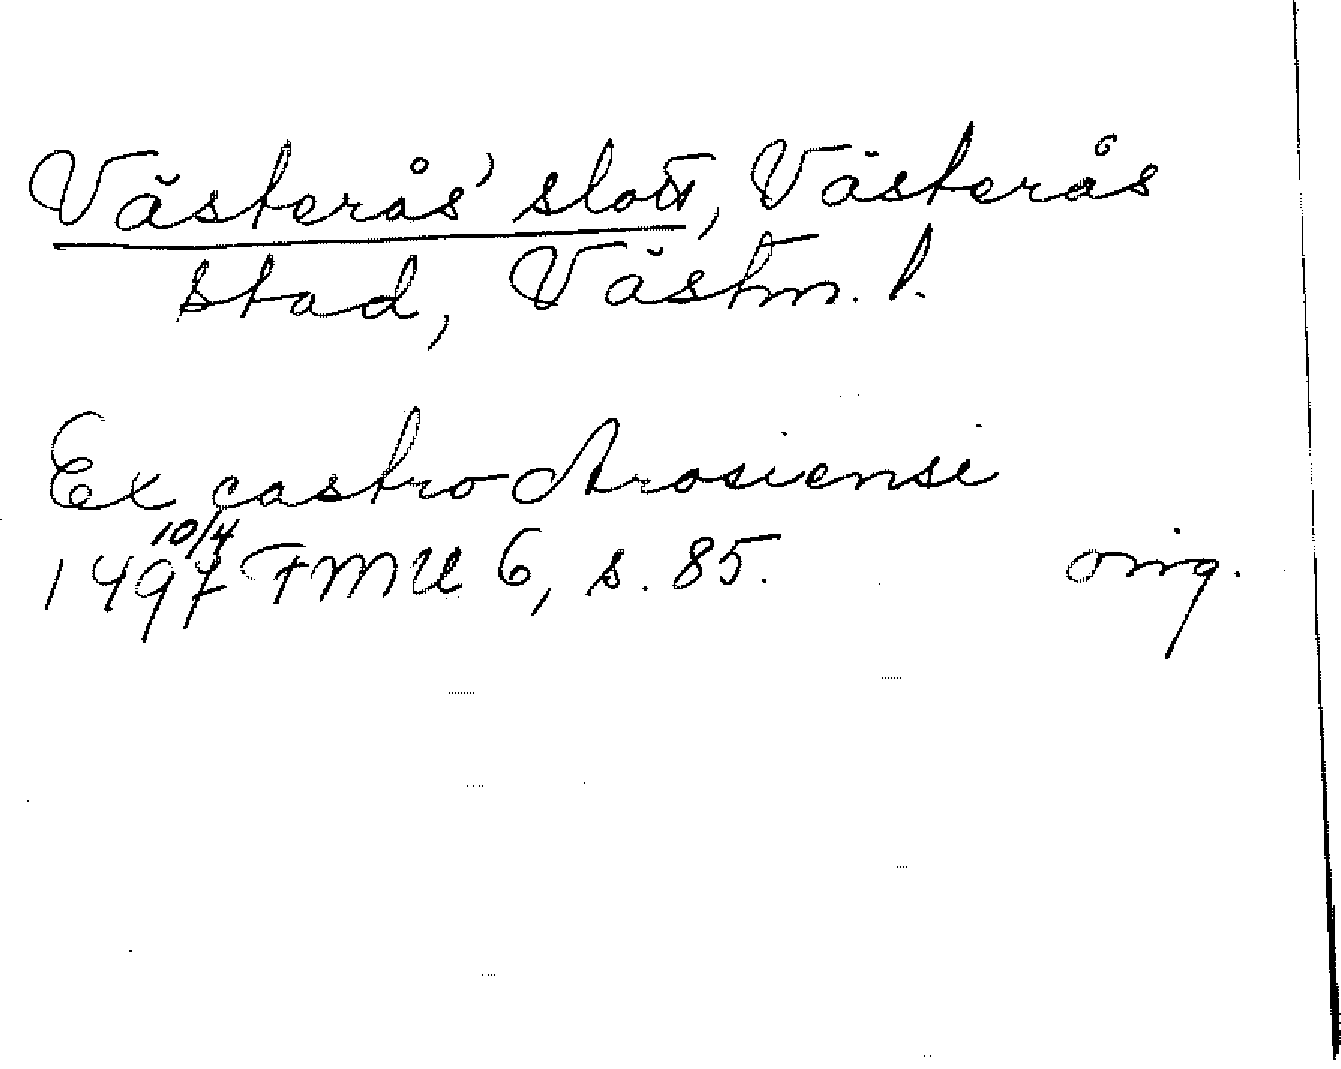 Västerås' slott, Västerås
stad, Västm. l.
Ex castro Arosiensi
1497 10/4 FMU 6, s. 85. orig.